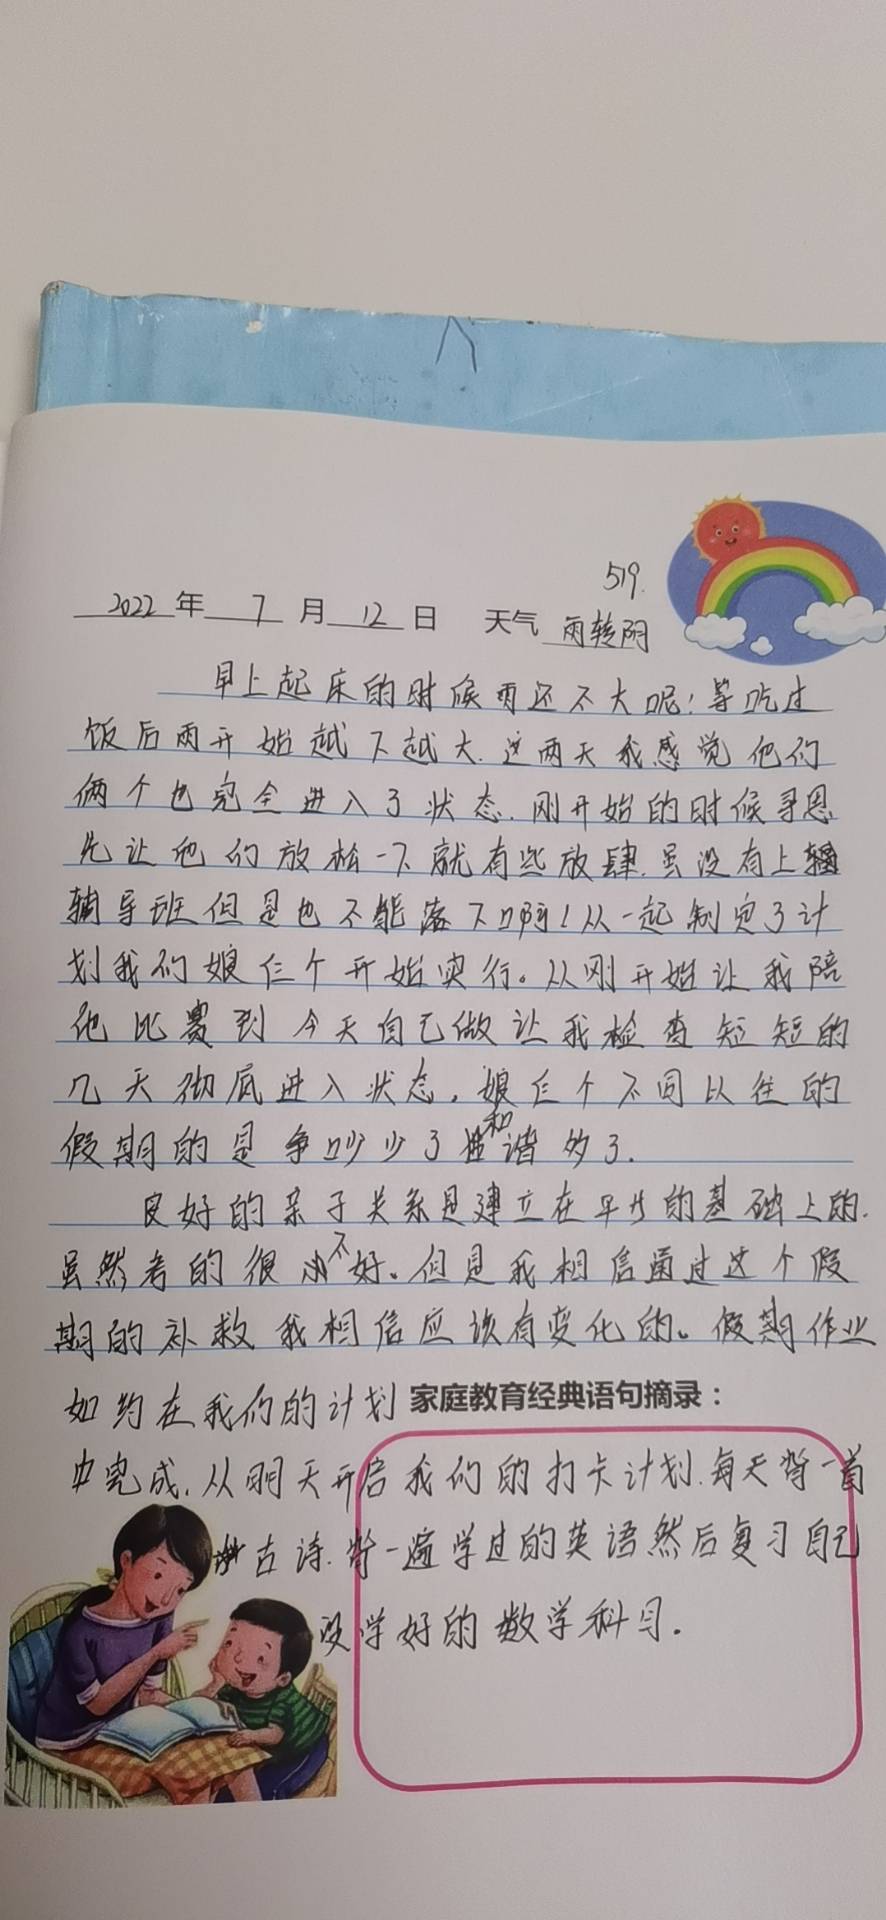 519.
2022年7月12日 天气 雨转阴
早上起床的时候雨还不大呢!等吃过
饭后雨开始越下越大.这两天我感觉他们
俩个也完全进入了状态.刚开始的时候寻思
先让他们放松一下就有些放肆.虽没有上
辅导班但是也不能落下啊!从一起制定了计
划我们娘仨个开始实行。从刚开始让我陪
他比赛到今天自己做让我检查短短的
几天彻底进入状态,娘仨个不同以往的
假期的是争吵少了和谐多了.
良好的亲子关系是建立在平等的基础上的.
虽然考的很不好。但是我相信通过这个假
期的补救我相信应该有变化的。假期作业
如约在我们的计划
家庭教育经典语句摘录:
中完成.从明天开启我们的打卡计划.每天背一首
古诗.背一遍学过的英语然后复习自己
没学好的数学科目.